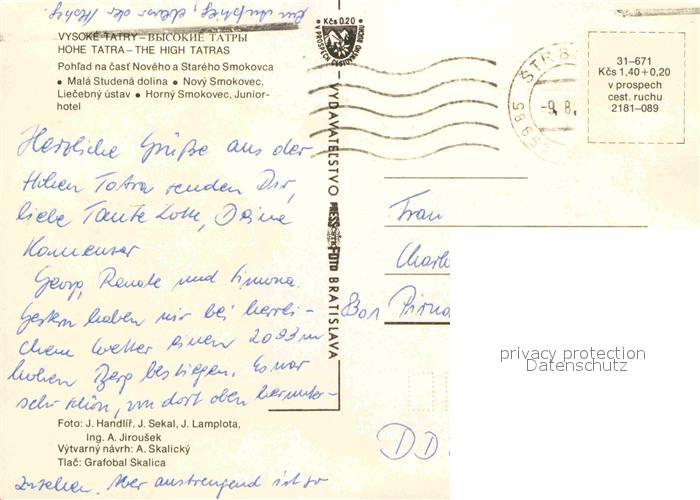 ein Aufstieg, 
VYSOKÉ TATRY – ВЫСОКИЕ ТАТРЫ
HOHE TATRA – THE HIGH TATRAS
Pohľad na časť Nového a Starého Smokovca
● Malá Studená dolina ● Nový Smokovec,
Liečebný ústav ● Horný Smokovec, Junior-
hotel
Herzliche Grüße aus der
Hohen Tatra senden Dir,
liebe Tante Lotte, Deine
Kamenzer
Georg, Renate und Simona.
Gestern haben wir bei herrli-
chem Wetter einen 2093 m
hohen Berg bestiegen. Es war
sehr schön, von dort oben herunter-
Foto: J. Handlíř, J. Sekal, J. Lamplota,
Ing. A. Jiroušek
Výtvarný návrh: A. Skalický
Tlač: Grafobal Skalica
zusehen. Aber anstrengend ist so
Kčs 0,20
V PROSPECH CESTOVNÉHO RUCHU
VYDAVATEĽSTVO PRESSFOTO BRATISLAVA
ŠTRB
-9. 8.
059 85
31–671
Kčs 1,40 + 0,20
v prospech
cest. ruchu
2181–089
Frau
Charlo
8301 Pirna
DD
privacy protection
Datenschutz